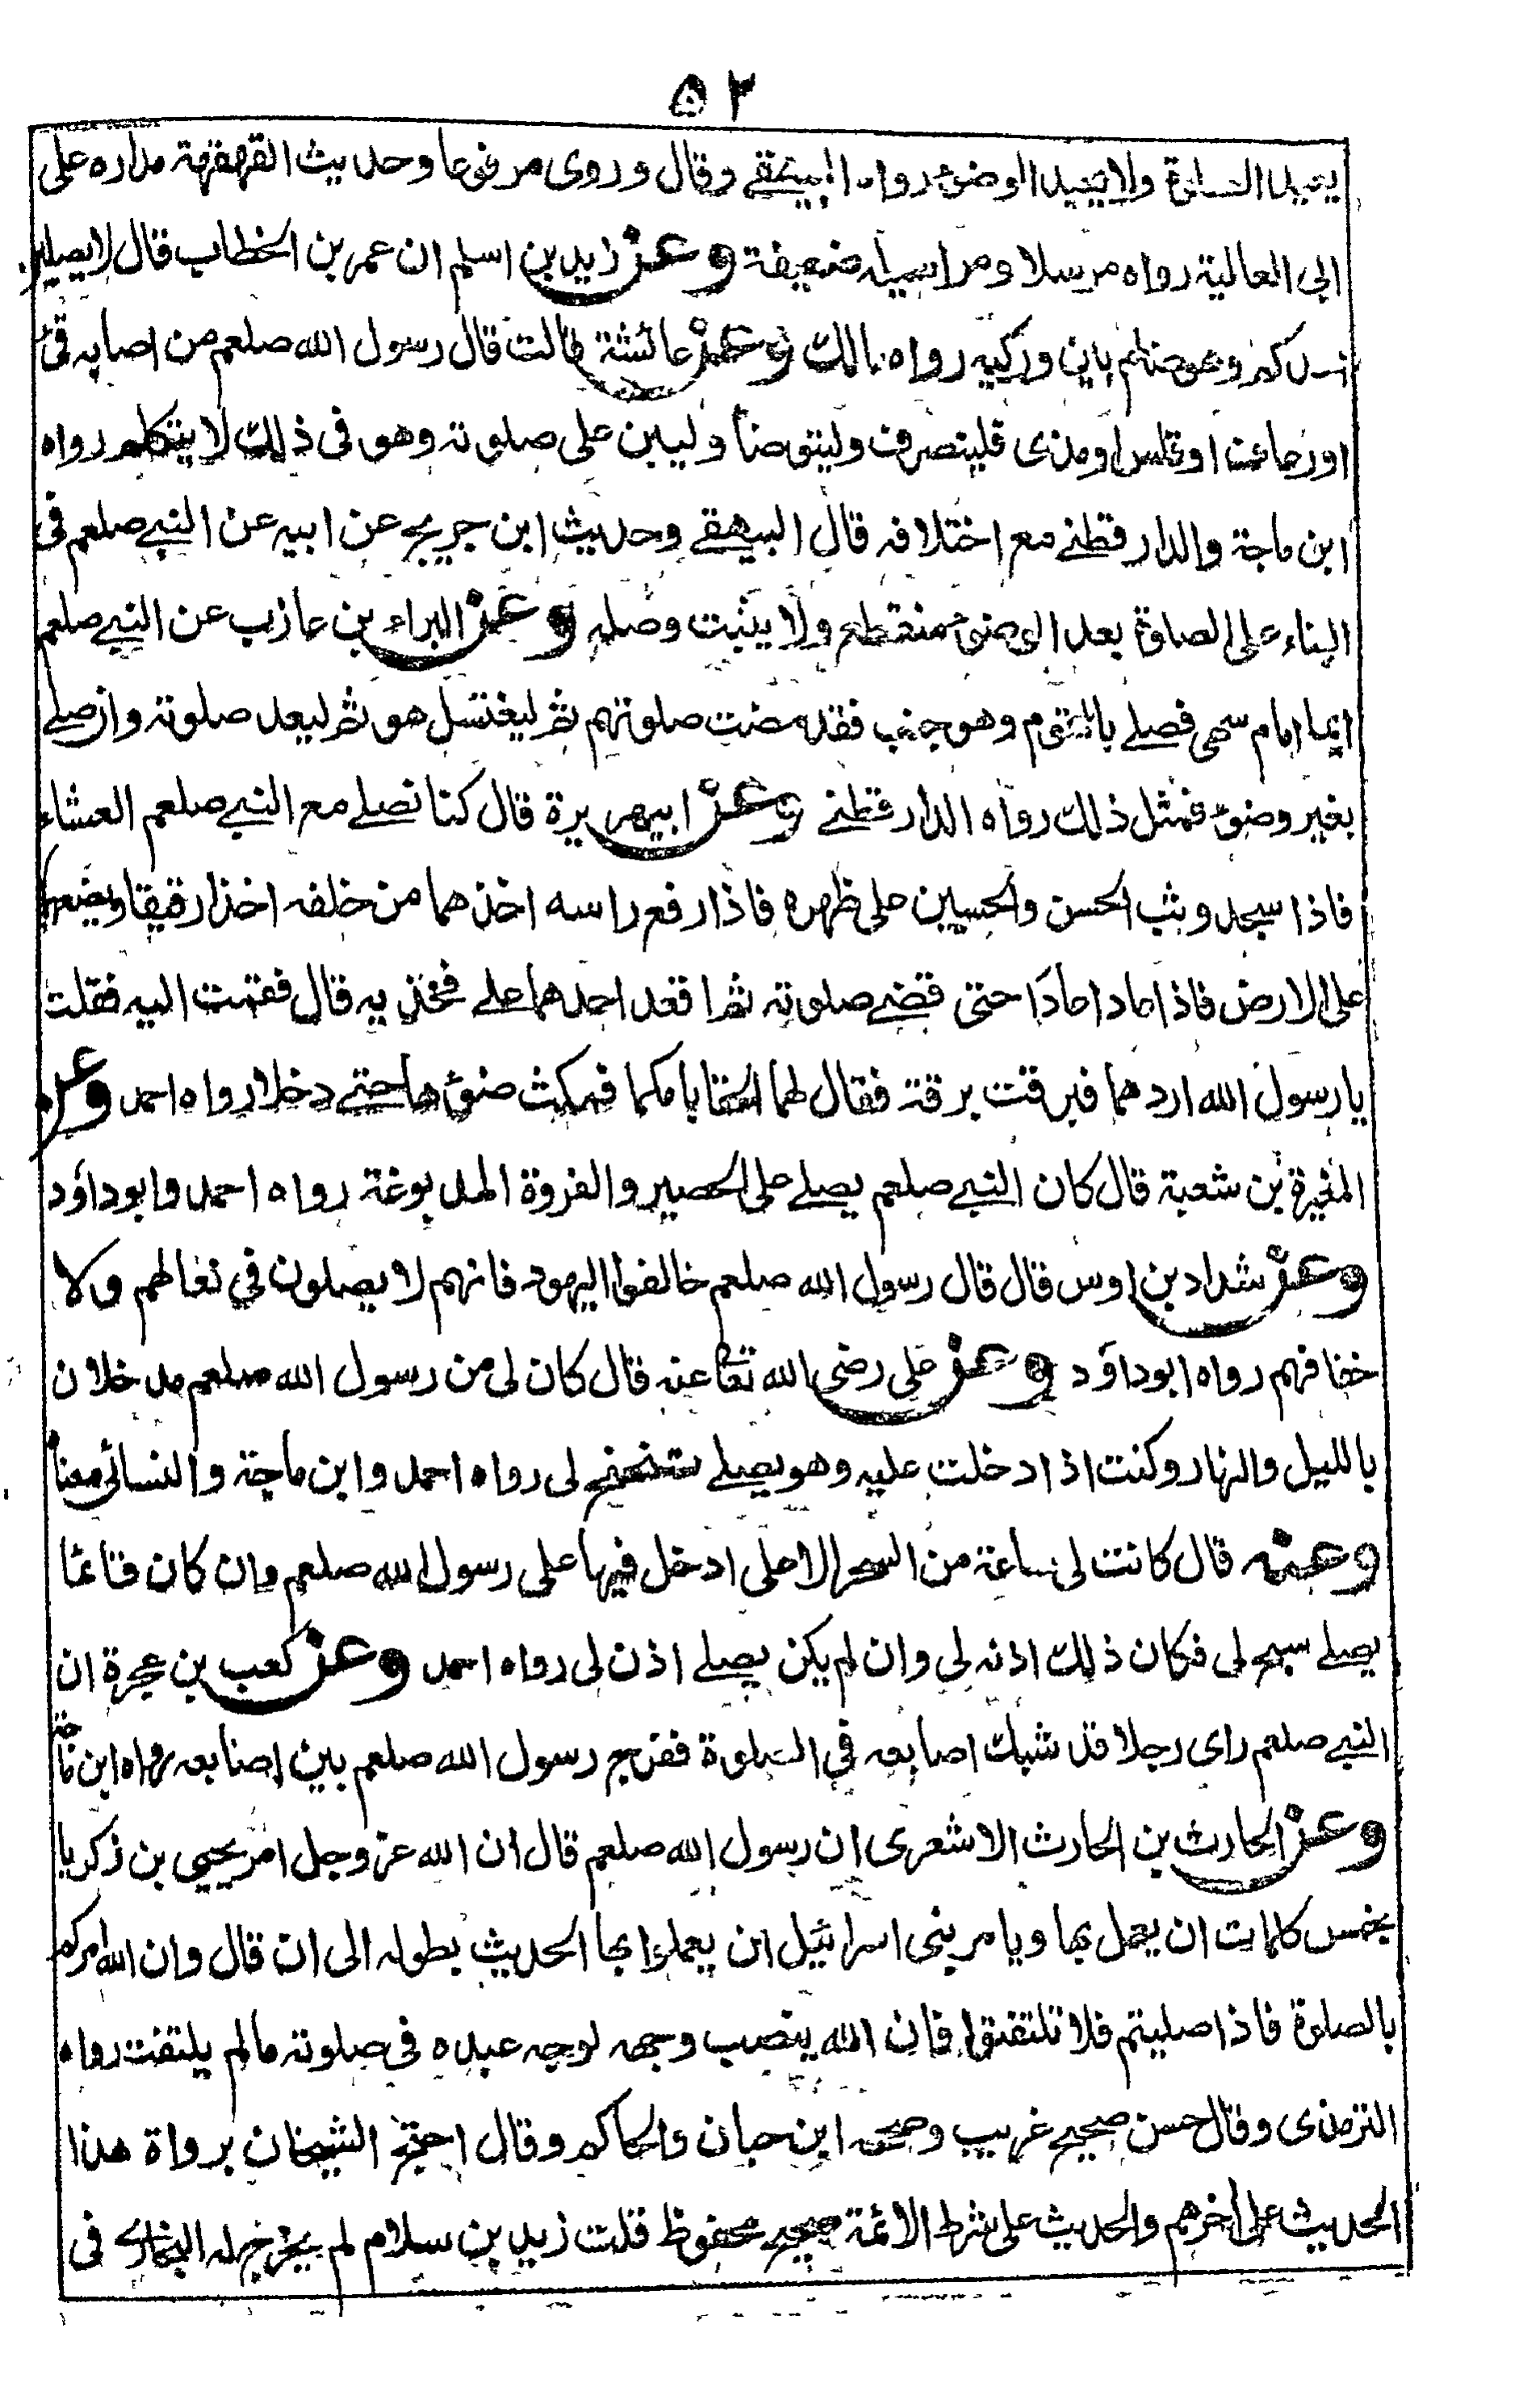 ٥٢
يعيد الصلوة ولا يعيد الوضوء رواه البيهقے وقال وروى مرفوعا وحديث القهقهة مداره على
ابى العالية رواه مرسلا ومراسيله ضعيفة وعن زيد بن اسلم ان عمر بن الخطاب قال لا يصلين
احدكم وهو ضام بين وركيه رواه مالك وعن عائشة قالت قال رسول الله صلعم من اصابه قئ
اورعاف او قلس او مذى فلينصرف وليتوضأ وليبن على صلوته وهو فى ذلك لا يتكلم رواه
ابن ماجة والدارقطنے مع اختلافه قال البيهقے وحديث ابن جريج عن ابيه عن النبے صلعم فى
البناء على الصلوة بعد الوضوء منقطع ولا يثبت وصله وعن البراء بن عازب عن النبے صلعم
ايما امام سهى فصلے بالقوم وهو جنب فقد مضت صلوتهم ثم ليغتسل هو ثم ليعد صلوته وان صلے
بغير وضوء فمثل ذلك رواه الدارقطنے وعن ابيهريرة قال كنا نصلے مع النبے صلعم العشاء
فاذا سجد وثب الحسن والحسين على ظهره فاذا رفع راسه اخذهما من خلفه اخذا رقيقا ويضعهما
على الارض فاذا عاد اعادا حتى قضے صلوته ثم اقعد احدهما علے فخذيه قال فقمت اليه فقلت
يا رسول الله اردهما فبرقت برقة فقال لهما الحقا بامكما فمكث ضوؤها حتے دخلا رواه احمد وعن
المغيرة بن شعبة قال كان النبے صلعم يصلے على الحصير والفروة المدبوغة رواه احمد وابو داؤد
وعن شداد بن اوس قال قال رسول الله صلعم خالفوا اليهود فانهم لا يصلون في نعالهم ولا
خفافهم رواه ابوداؤد وعن على رضى الله تعا عنه قال كان لى من رسول الله صلعم مدخلان
بالليل والنهار وكنت اذا دخلت عليه وهو يصلے يتنحنح لى رواه احمد وابن ماجة والنسائى معناه
وعنه قال كانت لى ساعة من السحر الاعلى ادخل فيها على رسول الله صلعم وان كان قائما
يصلے سبح لى فكان ذلك اذنه لى وان لم يكن يصلے اذن لى رواه احمد وعن كعب بن عجرة ان
النبے صلعم راى رجلا قد شبك اصابعه في الصلوة ففرج رسول الله صلعم بين اصابعه رواه ابن ماجة
وعن الحارث بن الحارث الاشعرى ان رسول الله صلعم قال ان الله عز وجل امر يحيى بن زكريا
بخمس كلمات ان يعمل بها ويامر بنى اسرائيل ان يعملوا بها الحديث بطوله الى ان قال وان الله امركم
بالصلوة فاذا صليتم فلا تلتفتوا فان الله ينصب وجهه لوجه عبده فى صلوته مالم يلتفت رواه
الترمذى وقال حسن صحيح غريب وصححه ابن حبان والحاكم وقال احتج الشيخان برواة هذا
الحديث على اخرهم والحديث على شرط الائمة صحيح محفوظ قلت زيد بن سلام لم يخرج له البخارے فى